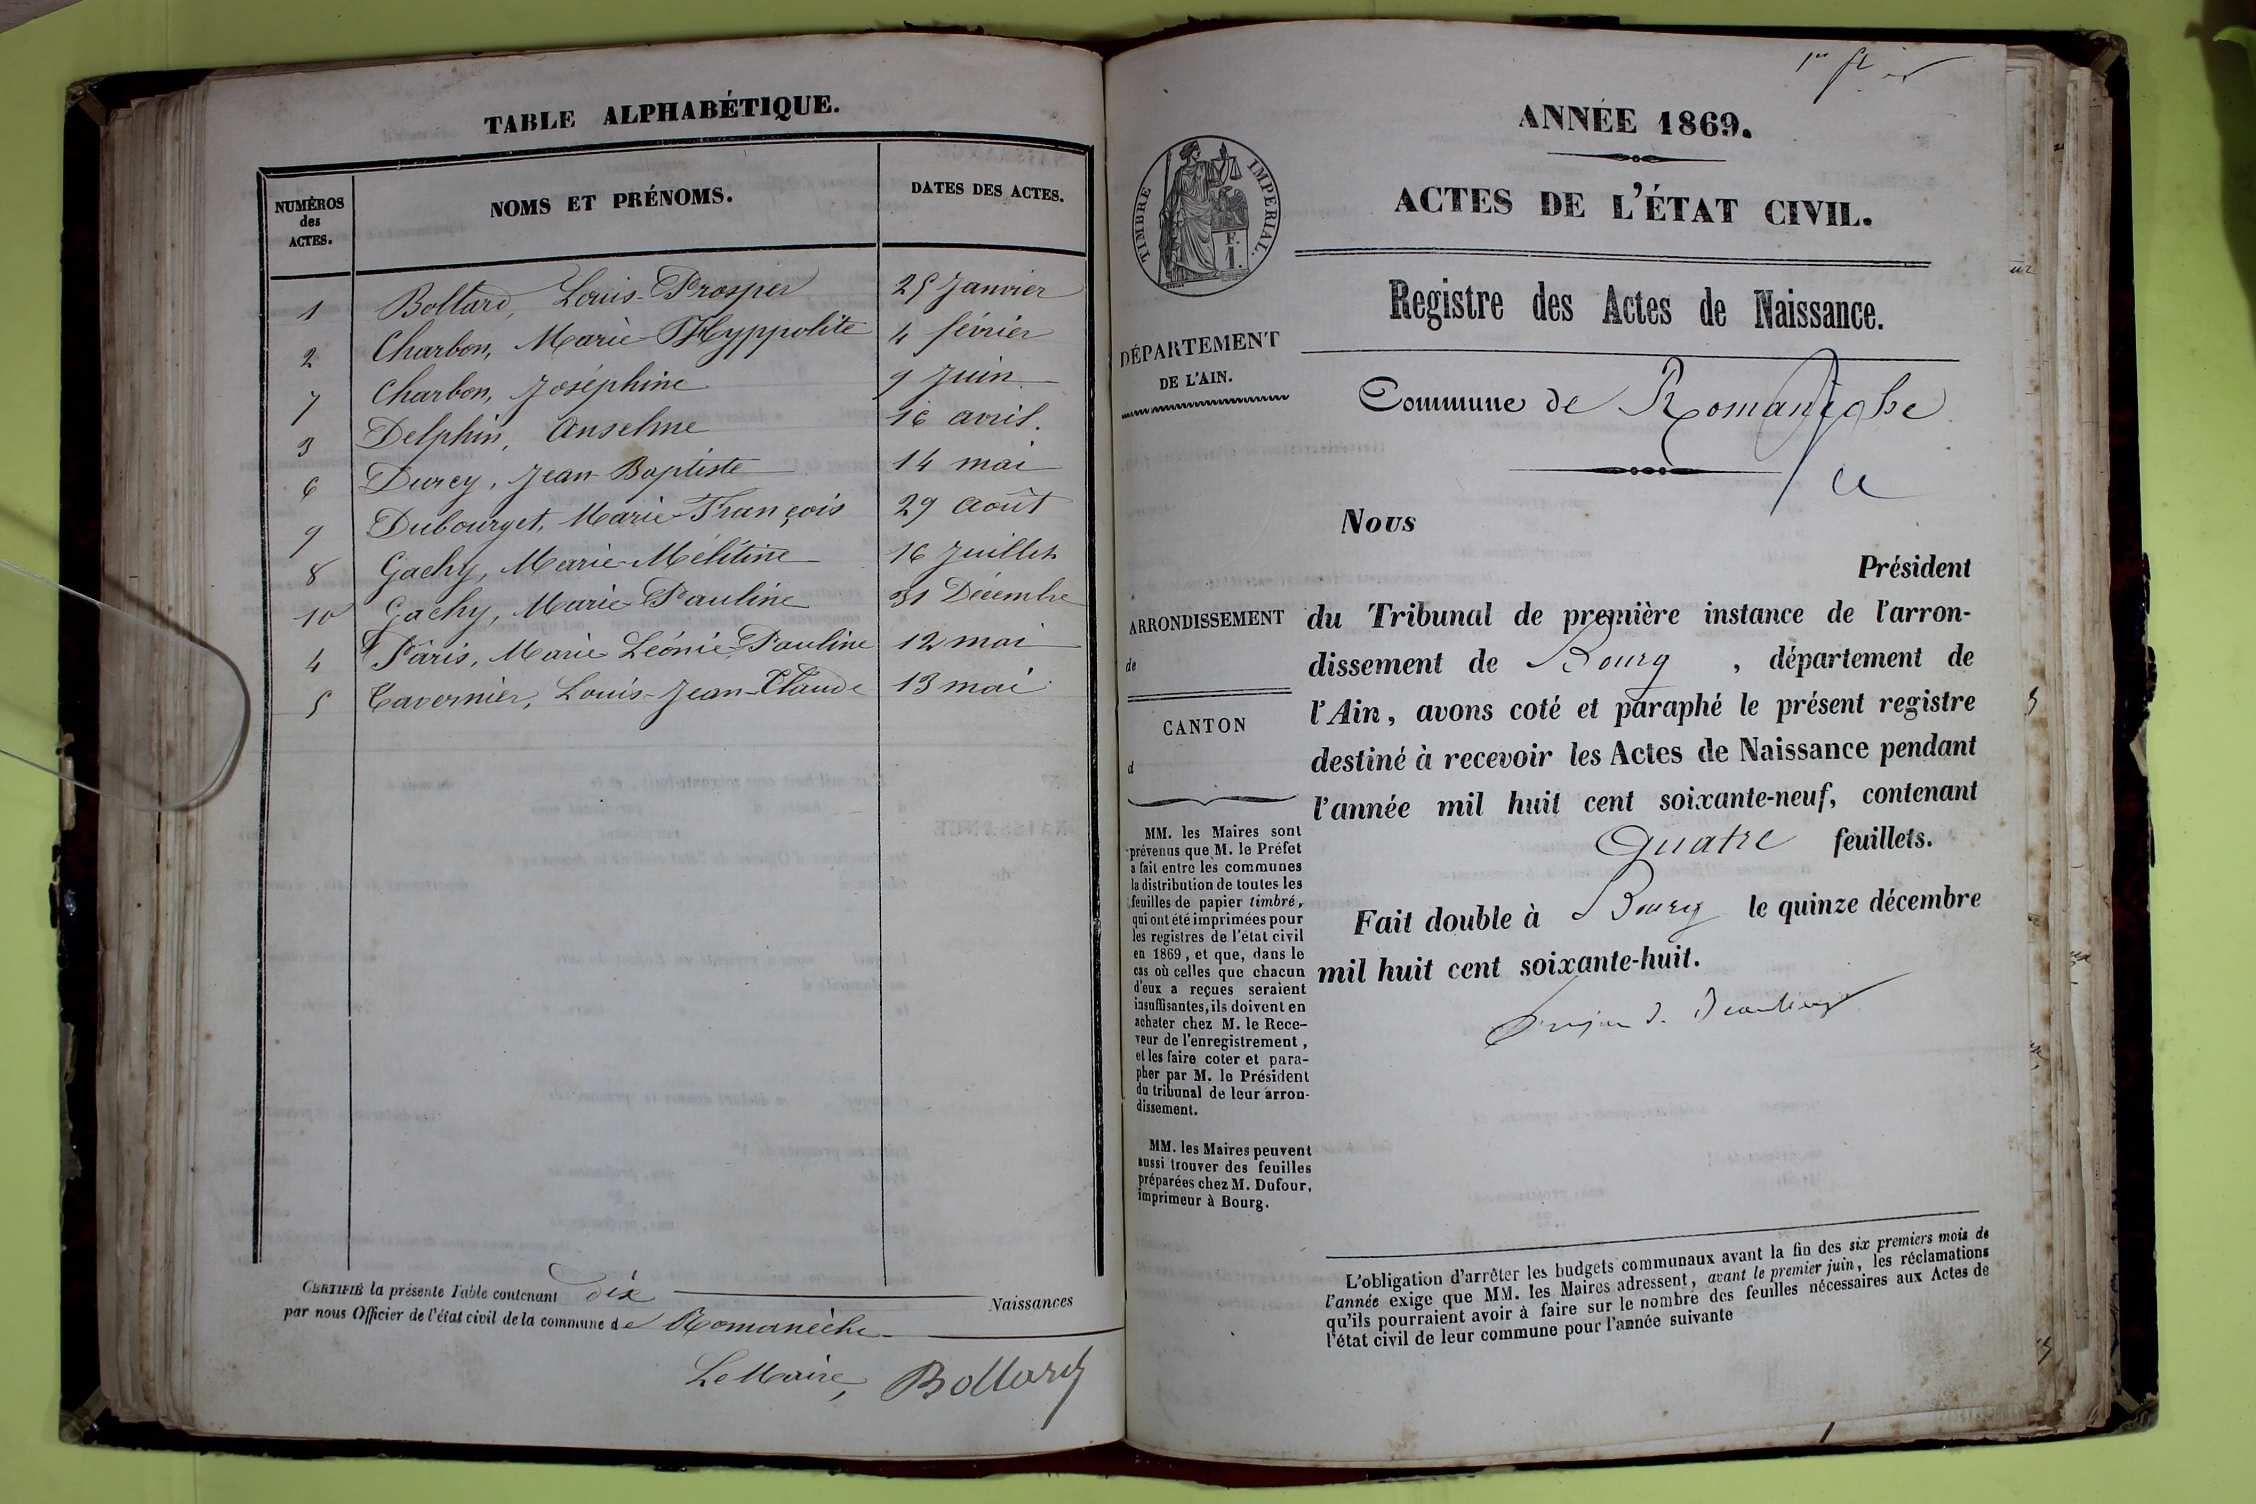 TABLE ALPHABÉTIQUE.
NUMÉROS des ACTES. NOMS ET PRÉNOMS. DATES DES ACTES.
1 Bollard, Louis-Prosper 25 Janvier
2 Charbon, Marie-Hyppolite 4 février
7 Charbon, Joséphine 9 Juin
3 Delphin, Anselme 16 avril.
6 Durey, Jean-Baptiste 14 mai
9 Dubourget, Marie-François 29 Août
8 Gachy, Marie-Mélitine 16 Juillet
10 Gachy, Marie-Pauline 31 Décembre
4 Pâris, Marie-Léonie-Pauline 12 mai
5 Tavernier, Louis-Jean-Claude 13 mai
CERTIFIÉ la présente Table contenant dix Naissances
par nous Officier de l'état civil de la commune de Romanèche
Le Maire, Bollard
ANNÉE 1869.
ACTES DE L'ÉTAT CIVIL.
TIMBRE IMPERIAL.
F.
1.
Registre des Actes de Naissance.
DÉPARTEMENT
DE L'AIN.
Commune de Romanèche
Nous
Président
ARRONDISSEMENT
de
CANTON
d
du Tribunal de première instance de l'arron-
dissement de Bourg , département de
l'Ain, avons coté et paraphé le présent registre
destiné à recevoir les Actes de Naissance pendant
l'année mil huit cent soixante-neuf, contenant
quatre feuillets.
Fait double à Bourg le quinze décembre
mil huit cent soixante-huit.
MM. les Maires sont
prévenus que M. le Préfet
a fait entre les communes
la distribution de toutes les
feuilles de papier timbré,
qui ont été imprimées pour
les registres de l'état civil
en 1869, et que, dans le
cas où celles que chacun
d'eux a reçues seraient
insuffisantes, ils doivent en
acheter chez M. le Rece-
veur de l'enregistrement,
et les faire coter et para-
pher par M. le Président
du tribunal de leur arron-
dissement.
MM. les Maires peuvent
aussi trouver des feuilles
préparées chez M. Dufour,
imprimeur à Bourg.
L'obligation d'arrêter les budgets communaux avant la fin des six premiers mois de
l'année exige que MM. les Maires adressent, avant le premier juin, les réclamations
qu'ils pourraient avoir à faire sur le nombre des feuilles nécessaires aux Actes de
l'état civil de leur commune pour l'année suivante